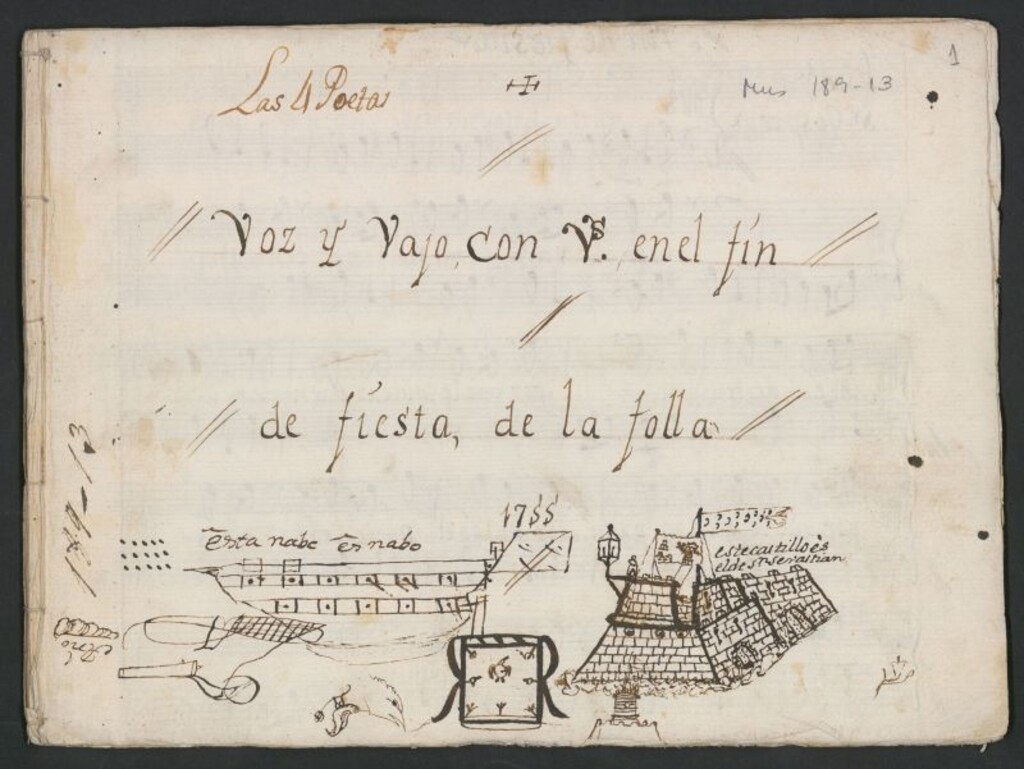 1
Las 4 Poetas
Mus 189-13
Voz y Vajo, con Vs. en el fin
de fiesta, de la folla
189-13
1755
esta nabe es nabo
este castillo ès
el de sn sevastian